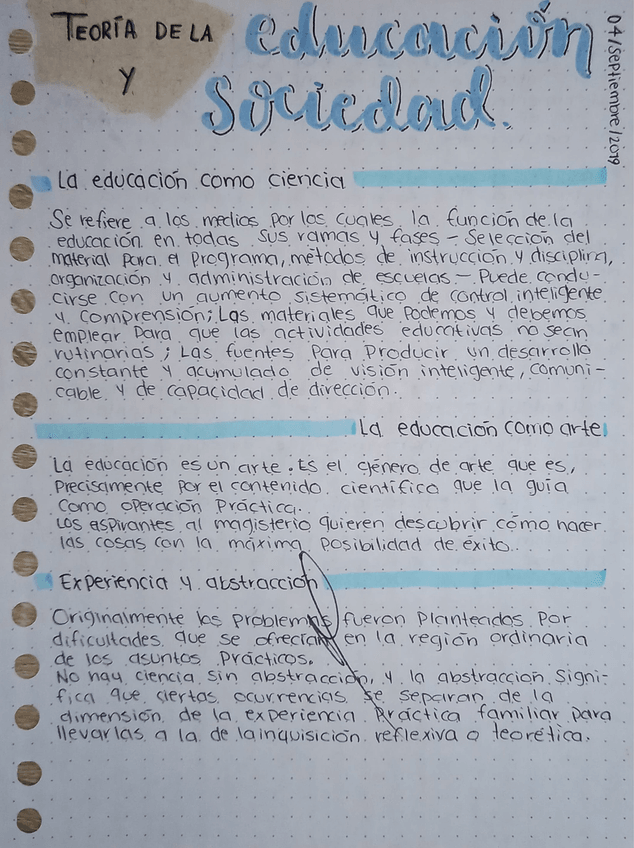 TEORÍA DE LA educación
Y sociedad.
04/septiembre/2019
La educación como ciencia
Se refiere a los medios por los cuales la función de la
educación en todas sus ramas y fases - Selección del
material para el programa, métodos de instrucción y disciplina,
organización y administración de escuelas - Puede condu-
cirse con un aumento sistemático de control inteligente
y comprensión; Las materiales que podemos y debemos
emplear para que las actividades educativas no sean
rutinarias; Las fuentes para producir un desarrollo
constante y acumulado de visión inteligente, comuni-
cable y de capacidad de dirección.
La educación como arte
La educación es un arte. Es el género de arte que es,
precisamente por el contenido científico que la guía
como operación práctica.
Los aspirantes al magisterio quieren descubrir cómo hacer
las cosas con la máxima posibilidad de éxito.
Experiencia y abstracción
Originalmente los problemas fueron planteados por
dificultades que se ofrecían en la región ordinaria
de los asuntos prácticos.
No hay ciencia sin abstracción, y la abstracción signi-
fica que ciertas ocurrencias se separan de la
dimensión de la experiencia práctica familiar para
llevarlas a la de la inquisición reflexiva o teorética.